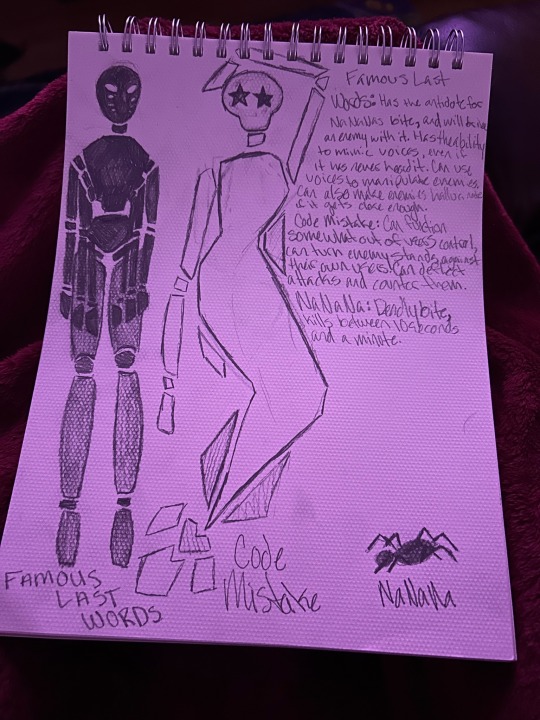 Famous Last
Words: Has the antidote for
NaNaNas bite, and will
an enemy with it. Has the ability
to mimic voices, even if
it has never heard it. Can use
voices to manipulate enemies.
Can also make enemies
if it gets close enough.
Code Mistake: Can function
somewhat out of users control,
can turn enemy stands against
their own users. Can deflect
attacks and counter them.
NaNaNa: Deadly bite,
kills between 10 seconds
and a minute.
FAMOUS
LAST
WORDS
Code
Mistake
NaNaNa